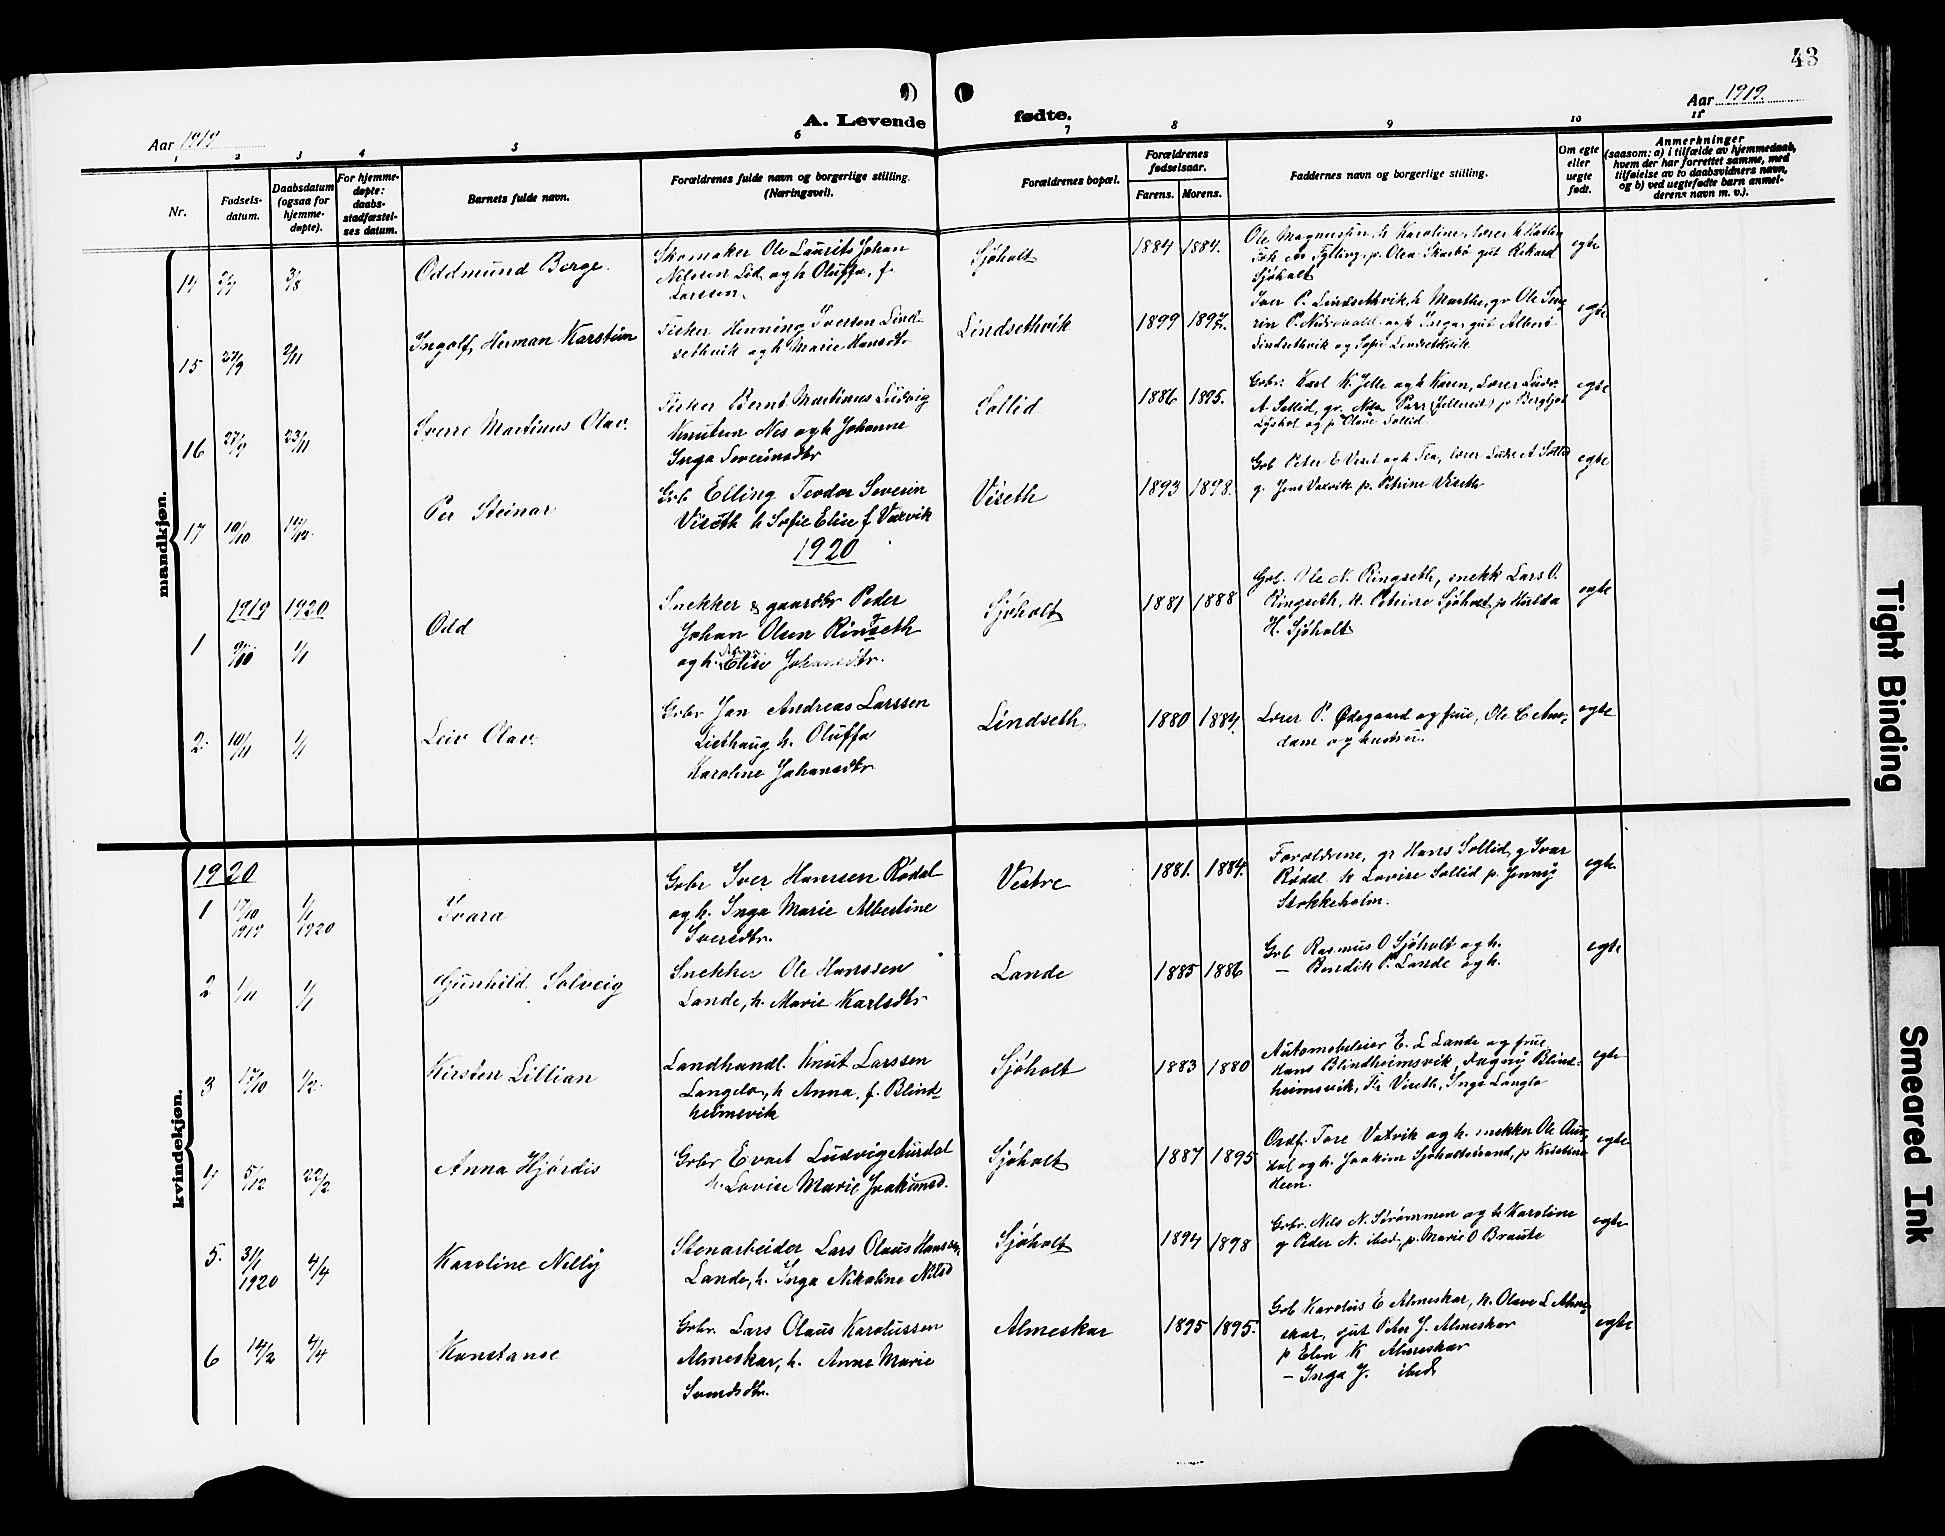 43
Aar 1919
A. Levende fødte.
Aar 1919.
1 2 3 4 5 6 7 8 9 10 11
Nr.
Fødsels-
datum.
Daabsdatum
(ogsaa for
hjemme-
døpte).
For hjemme-
døpte:
daabs-
stadfæstel-
ses datum.
Barnets fulde navn.
Forældrenes fulde navn og borgerlige stilling.
(Næringsvei).
Forældrenes bopæl.
Forældrenes
fødselsaar.
Farens. Morens.
Faddernes navn og borgerlige stilling.
Om egte
eller
uegte
født.
Anmerkninger
(saasom: a) i tilfælde av hjemmedaab,
hvem der har forrettet samme, med
tilføielse av to daabsvidners navn,
og b) ved uegtefødte barn anmel-
derens navn m. v.).
mandkjøn.
14 3/8 Oddmund Borge.
Skomaker Ole Laurits Johan
Nilssen Lid og h Oluffa, f.
Larssen.
Sjøholt 1884 1884.
Ole Magnussen, h Karoline, lærer K
Joh M Fylling, p. Olea Skarbø gut Rikard
Sjøholt
egte
15 27/9 2/11 Ingolf, Herman Karstein
Fisker Henning Iversen Lind-
sethvik og h Marie Hansdtr
Lindsethvik 1899 1897.
Iver P. Lindsethvik, h Marthe, gr Ole Seve
rin P. og h Inga, gut Albert
Lindsethvik og Sofie Lindsethvik
egte
16 27/9 23/11 Sverre Martinus Olav.
Fisker Bernt Martinus Ludvig
Knutsen Nes og h Johanne
Inga Severinsdtr
Sollid 1886 1895.
Grbr. Karl K. Jelle og h Karen, Lærer Ludv.
A Sollid, gr. p Bergljot
Lyshol og p Olave Sollid
egte
17 10/10 14/12 Per Steinar
Grb Elling Teodor Severin
Viseth h Sofie Elise f Vaxvik
Viseth 1893 1898.
Grb Peter E Viset og h Tea, lærer Ludv A Sollid
g. Jens Vaxvik p. Petrine Viseth
egte
1920
1919 1920
1 1/1 Odd
Snekker & gaardbr Peder
Johan Olsen Ringseth
og h. Elise Johansdtr.
Sjøholt 1881 1888
Grb. Ole N. Ringseth, snekk Lars O.
Ringseth, h. Petrine Sjøholt, p Hilda
H. Sjøholt
egte
2. 10/11 1/1 Leiv Olav.
Grbr Jan Andreas Larssen
Liethaug h. Oluffa
Karoline Johansdtr
Lindseth 1880 1884.
Lærer P. Ødegaard og frue, Ole C Am-
dam og hustru.
egte
kvindekjøn.
1920
1 17/10 1919 1/1 1920 Ivara
Grbr Iver Hanssen Rødal
og h. Inga Marie Albertine
Iversdtr.
Vestre 1881. 1884.
Forældrene, gr Hans Sollid, g Ivar
Rødal h Lovise Sollid p. Jenny
Stokkeholm.
egte
2 1/11 1/1 Gunhild Solveig
Snekker Ole Hanssen
Lande, h. Marie Karlsdtr
Lande 1885 1886
Grb Rasmus O Sjøholt og h.
— Bendik P. Lande og h.
egte
3 17/10 1/2. Kirsten Lillian
Landhandl. Knut Larssen
Langlo, h Anna, f. Blind=
heimsvik
Sjøholt 1883 1880
Automobileier E. L Lande og frue
Hans Blindheimsvik, Dagny Blind-
heimsvik, Fr Viseth, Inga Langlo
egte
4 5/12 22/2 Anna Hjørdis
Grbr Evart Ludvig Aursdal
h. Lovise Marie Joakimsd.
Sjøholt 1887 1895
Ordf. Tore Vaxvik og h. snekker Ole Aurs-
dal og h. Joakim Sjøholtstrand, p Kristine
Heen.
egte
5. 31/1 1920 4/4 Karoline Nelly
Stenarbeider Lars Olaus Hanssen
Lande, h. Inga Nikoline Nilsd
Sjøholt 1894 1898
Grbr. Nils N. Strømmen og h Karoline
g Peder N. ibed, p. Marie O Braute
egte
6 14/2 4/4 Konstanse
Grbr. Lars Olaus Karolussen
Almeskar, h. Anne Marie
Svendsdtr.
Almeskar 1895 1895.
Grb Karolus E Almeskar, h. Olave L Alme-
skar, gut Peter J. Almeskar
p Elen K Almeskar
— Inga J. ibed
egte
Tight Binding
Smeared Ink